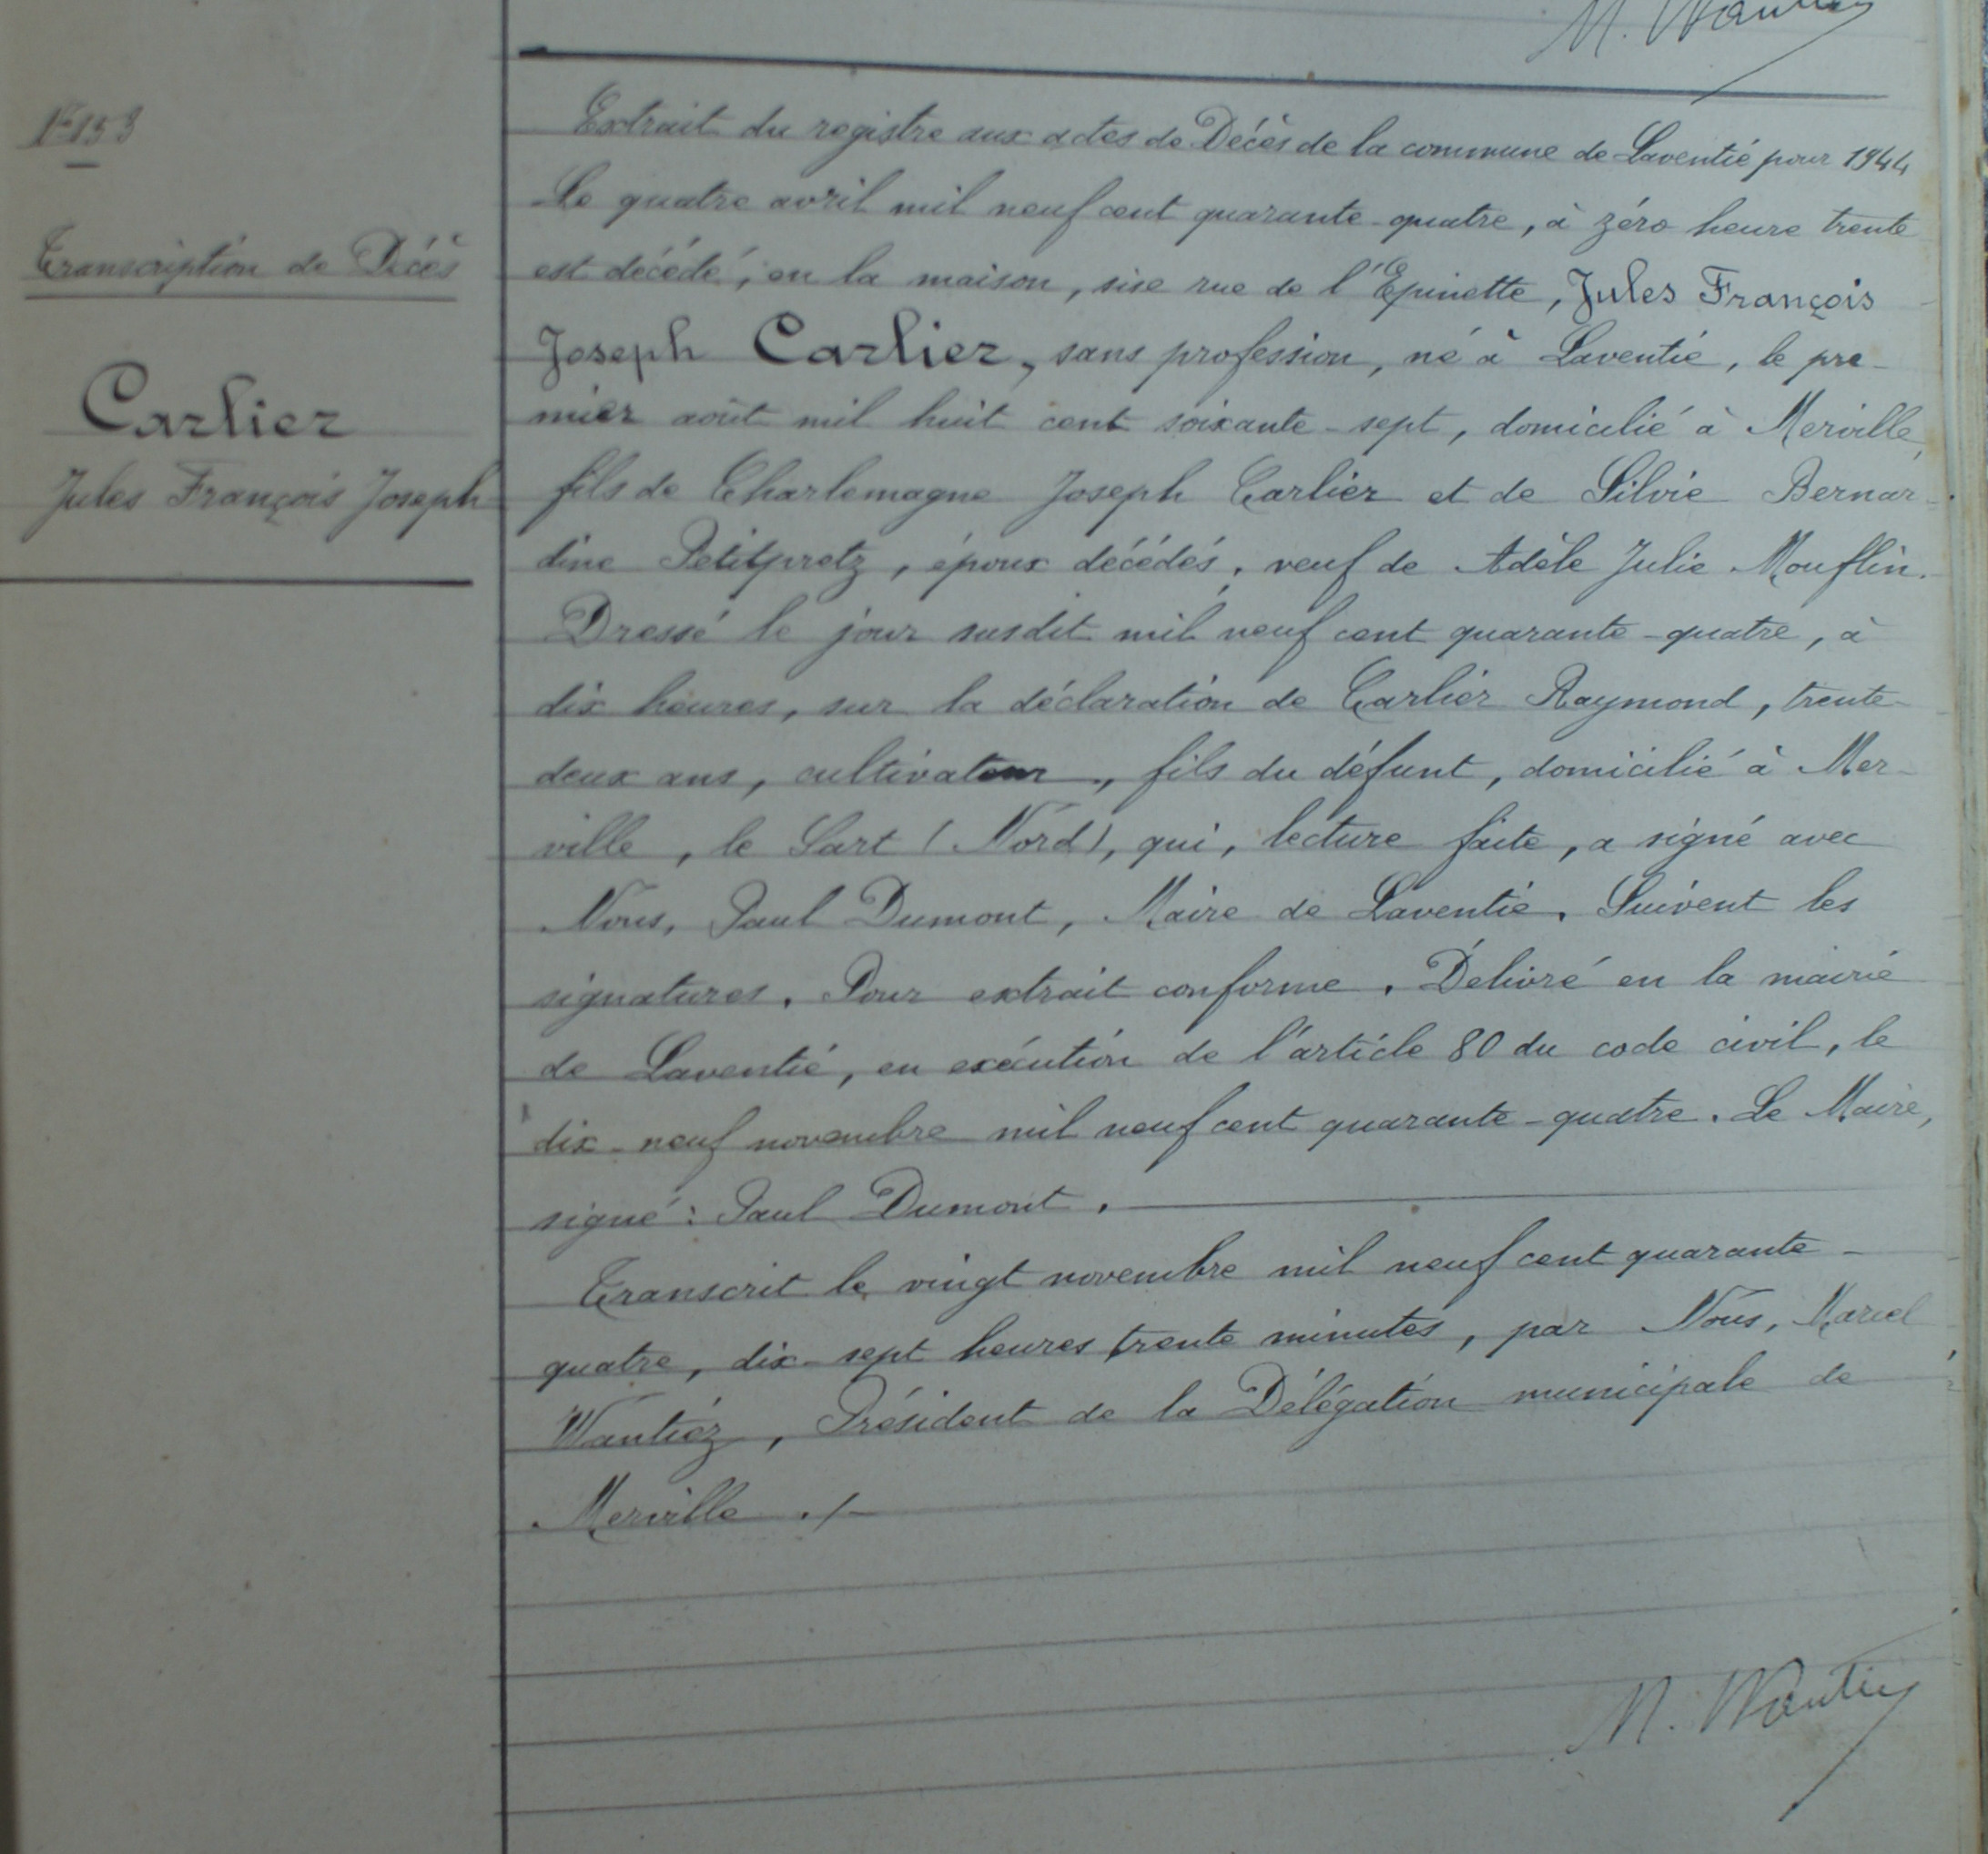 M. Wantiez
N° 153
Transcription de Décès
Carlier
Jules François Joseph
Extrait du registre aux actes de Décès de la commune de Laventie pour 1944
Le quatre avril mil neuf cent quarante-quatre, à zéro heure trente
est décédé, en la maison, sise rue de l'Epinette, Jules François
Joseph Carlier, sans profession, né à Laventie, le pre-
mier août mil huit cent soixante-sept, domicilié à Merville,
fils de Charlemagne Joseph Carlier et de Silvie Bernar-
dine Petitpretz, époux décédés, veuf de Adèle Julie Mouflin.
Dressé le jour susdit mil neuf cent quarante-quatre, à
dix heures, sur la déclaration de Carlier Raymond, trente-
deux ans, cultivateur, fils du défunt, domicilié à Mer-
ville, le Sart (Nord), qui, lecture faite, a signé avec
Nous, Paul Dumont, Maire de Laventie. Suivent les
signatures. Pour extrait conforme. Délivré en la mairie
de Laventie, en exécution de l'article 80 du code civil, le
dix-neuf novembre mil neuf cent quarante-quatre. Le Maire,
signé: Paul Dumont.
Transcrit le vingt novembre mil neuf cent quarante-
quatre, dix-sept heures trente minutes, par Nous, Marcel
Wantiez, Président de la Délégation municipale de
Merville ./-
M. Wantiez